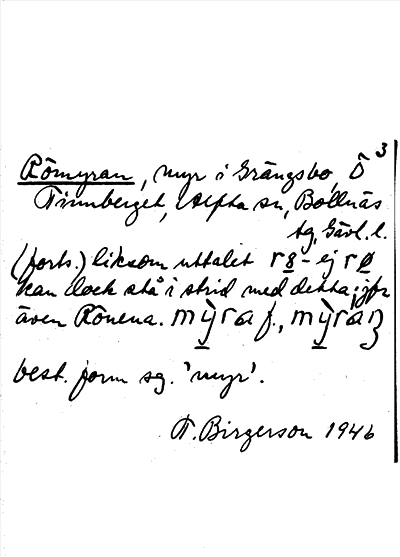 3
Römyran, myr i Grängsbo, Ö
Finnberget, Alfta sn, Bollnäs
tg, Gävl. l.
(forts.) liksom uttalet r8- ej rø
kan dock stå i strid med detta; jfr
även Rönena. mỳra f., mỳran
best. form sg. 'myr'.
T. Birgerson 1946